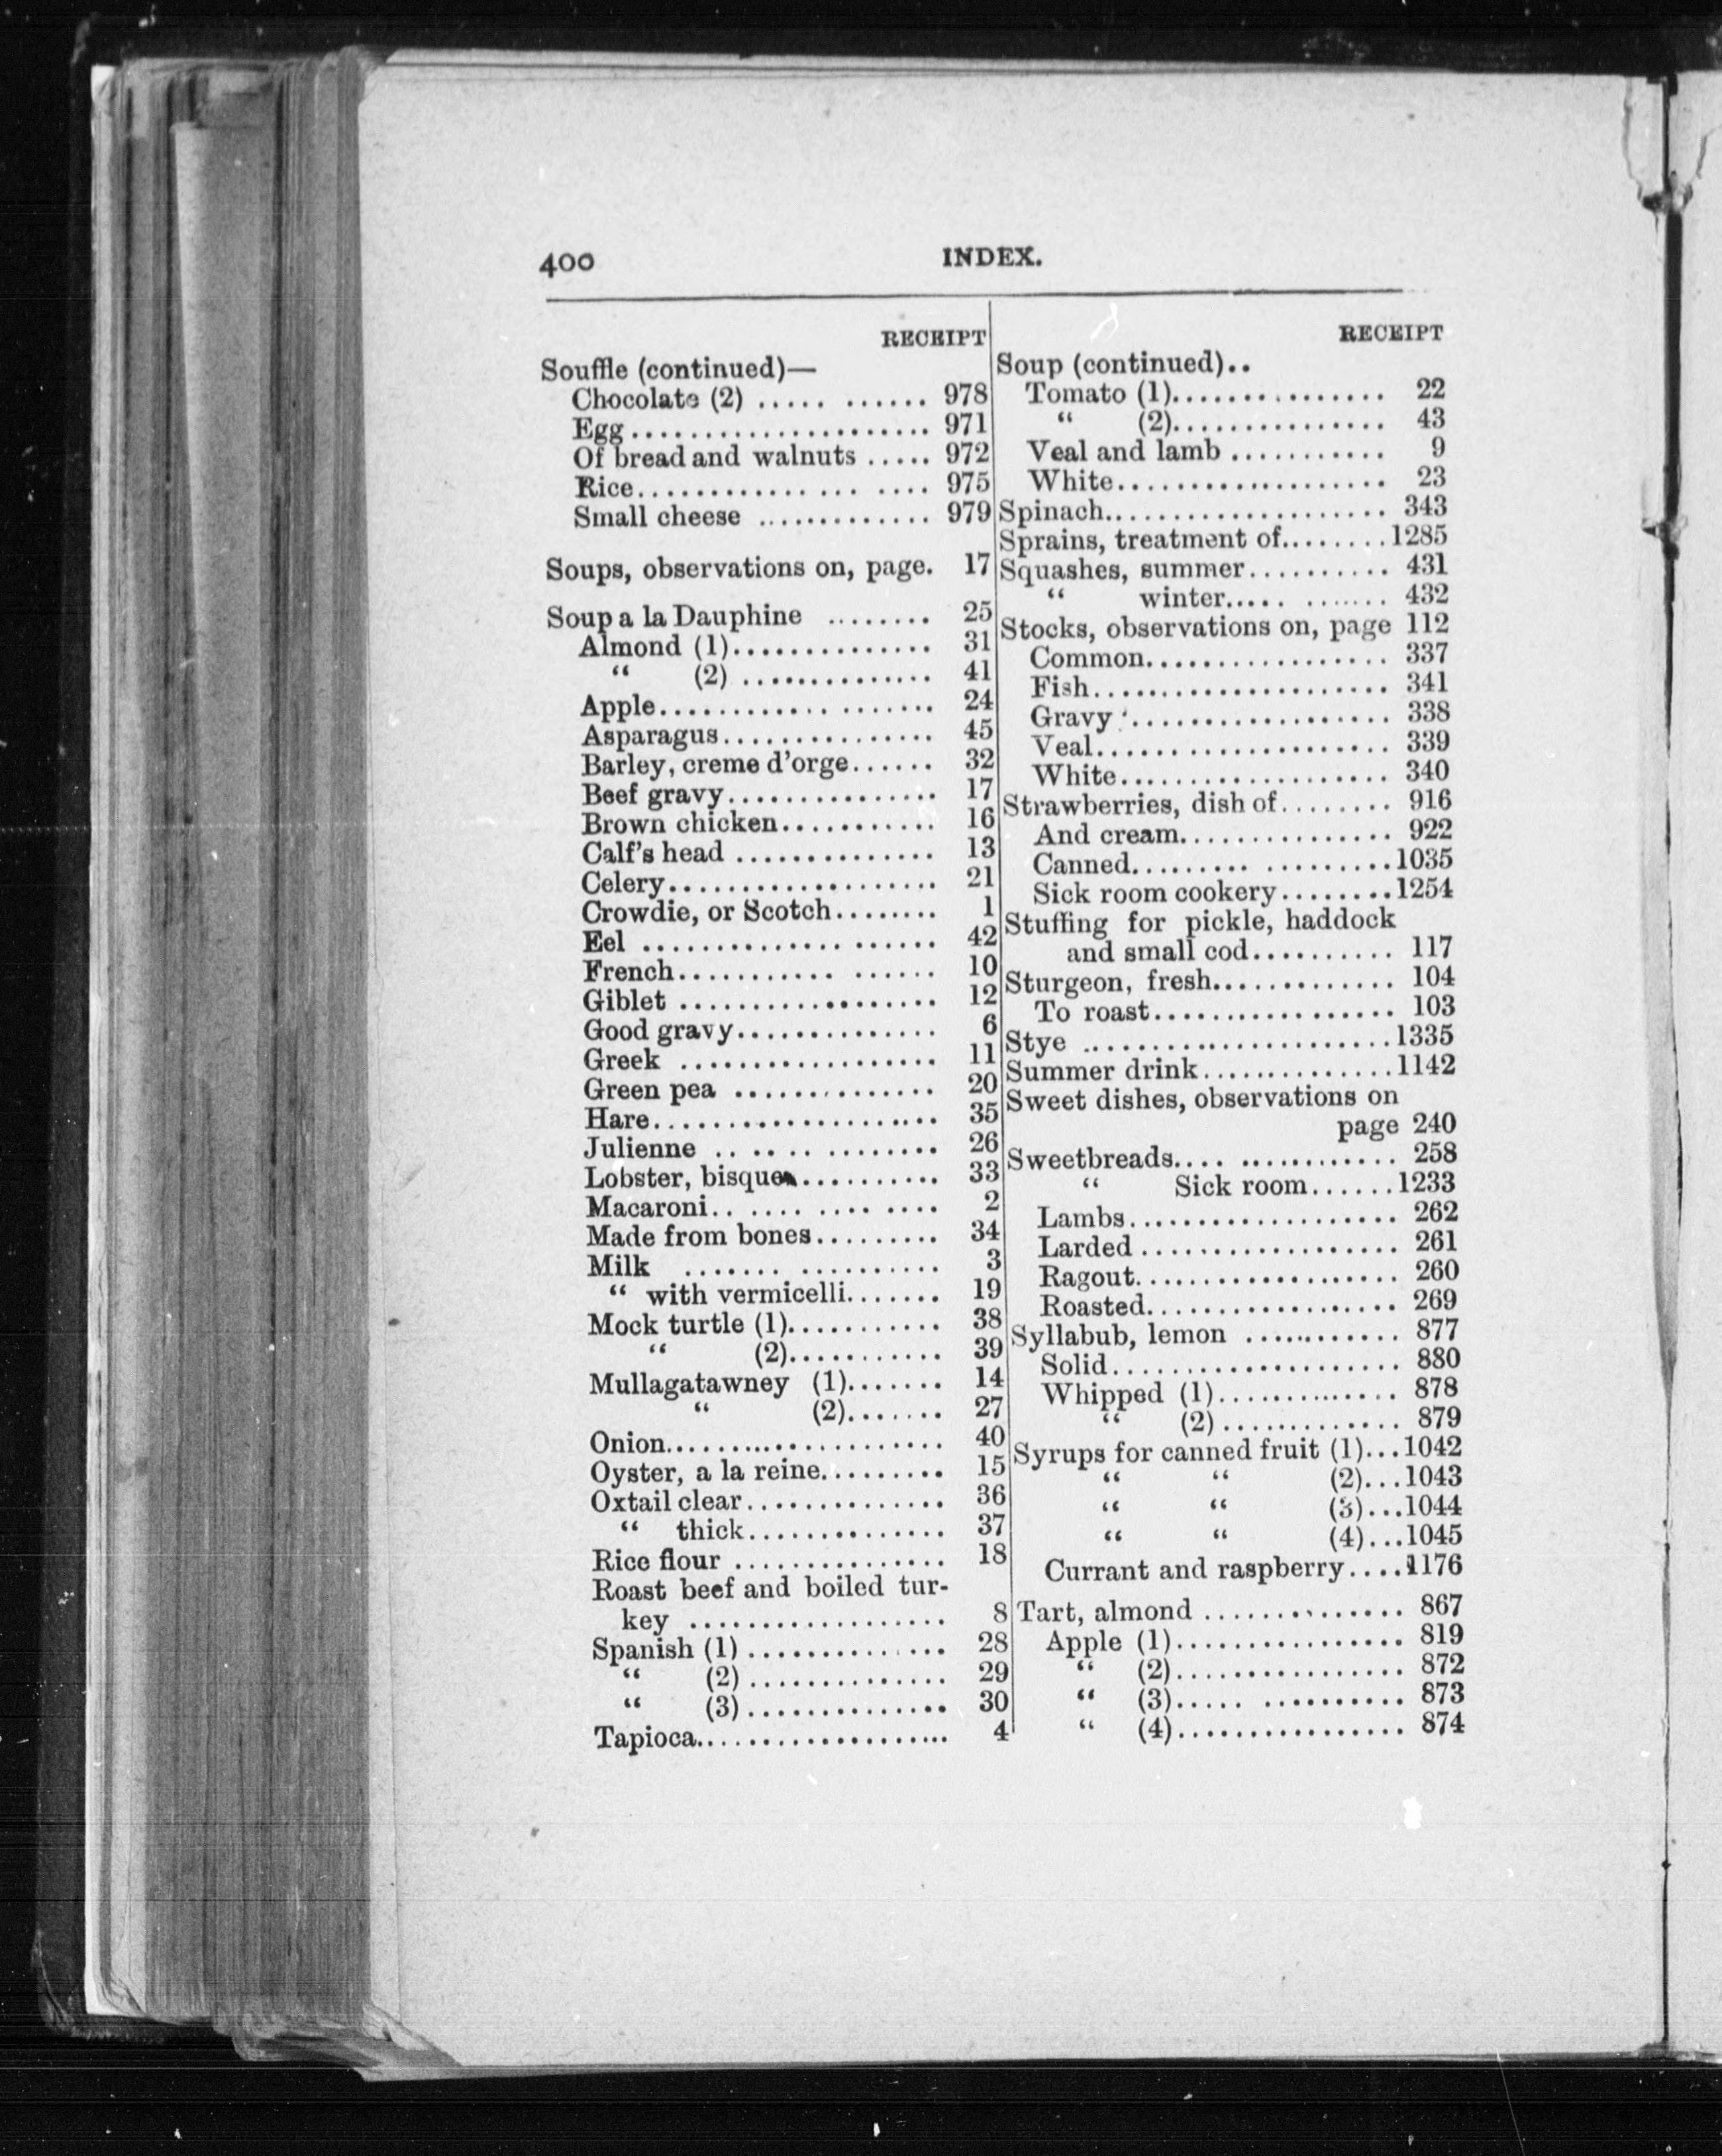 400
INDEX.
RECEIPT
Souffle (continued)—
Chocolate (2) ..... ...... 978
Egg...................... 971
Of bread and walnuts ..... 972
Rice............... ... .... 975
Small cheese ............. 979
Soups, observations on, page. 17
Soup a la Dauphine ........ 25
Almond (1).............. 31
“ (2) .............. 41
Apple............ ....... 24
Asparagus............... 45
Barley, creme d'orge...... 32
Beef gravy............... 17
Brown chicken........... 16
Calf's head .............. 13
Celery................... 21
Crowdie, or Scotch........ 1
Eel .............. ...... 42
French........... ...... 10
Giblet .................. 12
Good gravy.............. 6
Greek .................. 11
Green pea .............. 20
Hare.................... 35
Julienne .. .. .. ........ 26
Lobster, bisque.......... 33
Macaroni.. .... .... .... 2
Made from bones......... 34
Milk ....... .......... 3
“ with vermicelli....... 19
Mock turtle (1)........... 38
“ (2)........... 39
Mullagatawney (1)....... 14
“ (2)....... 27
Onion.................... 40
Oyster, a la reine......... 15
Oxtail clear.............. 36
“ thick.............. 37
Rice flour ............... 18
Roast beef and boiled tur-
key .................. 8
Spanish (1) .............. 28
“ (2) .............. 29
“ (3) .............. 30
Tapioca................... 4
RECEIPT
Soup (continued)..
Tomato (1)............... 22
“ (2)............... 43
Veal and lamb ........... 9
White................... 23
Spinach.................... 343
Sprains, treatment of........1285
Squashes, summer.......... 431
“ winter..... ....... 432
Stocks, observations on, page 112
Common................. 337
Fish..................... 341
Gravy .................. 338
Veal..................... 339
White................... 340
Strawberries, dish of........ 916
And cream............... 922
Canned......... .........1035
Sick room cookery........1254
Stuffing for pickle, haddock
and small cod.......... 117
Sturgeon, fresh............. 104
To roast................. 103
Stye ......................1335
Summer drink..............1142
Sweet dishes, observations on
page 240
Sweetbreads.... ............ 258
“ Sick room......1233
Lambs................... 262
Larded .................. 261
Ragout................... 260
Roasted.................. 269
Syllabub, lemon ........... 877
Solid.................... 880
Whipped (1)............. 878
“ (2) ............. 879
Syrups for canned fruit (1)...1042
“ “ (2)...1043
“ “ (3)...1044
“ “ (4)...1045
Currant and raspberry....1176
Tart, almond .............. 867
Apple (1)................ 819
“ (2)................ 872
“ (3)..... .......... 873
“ (4)................ 874